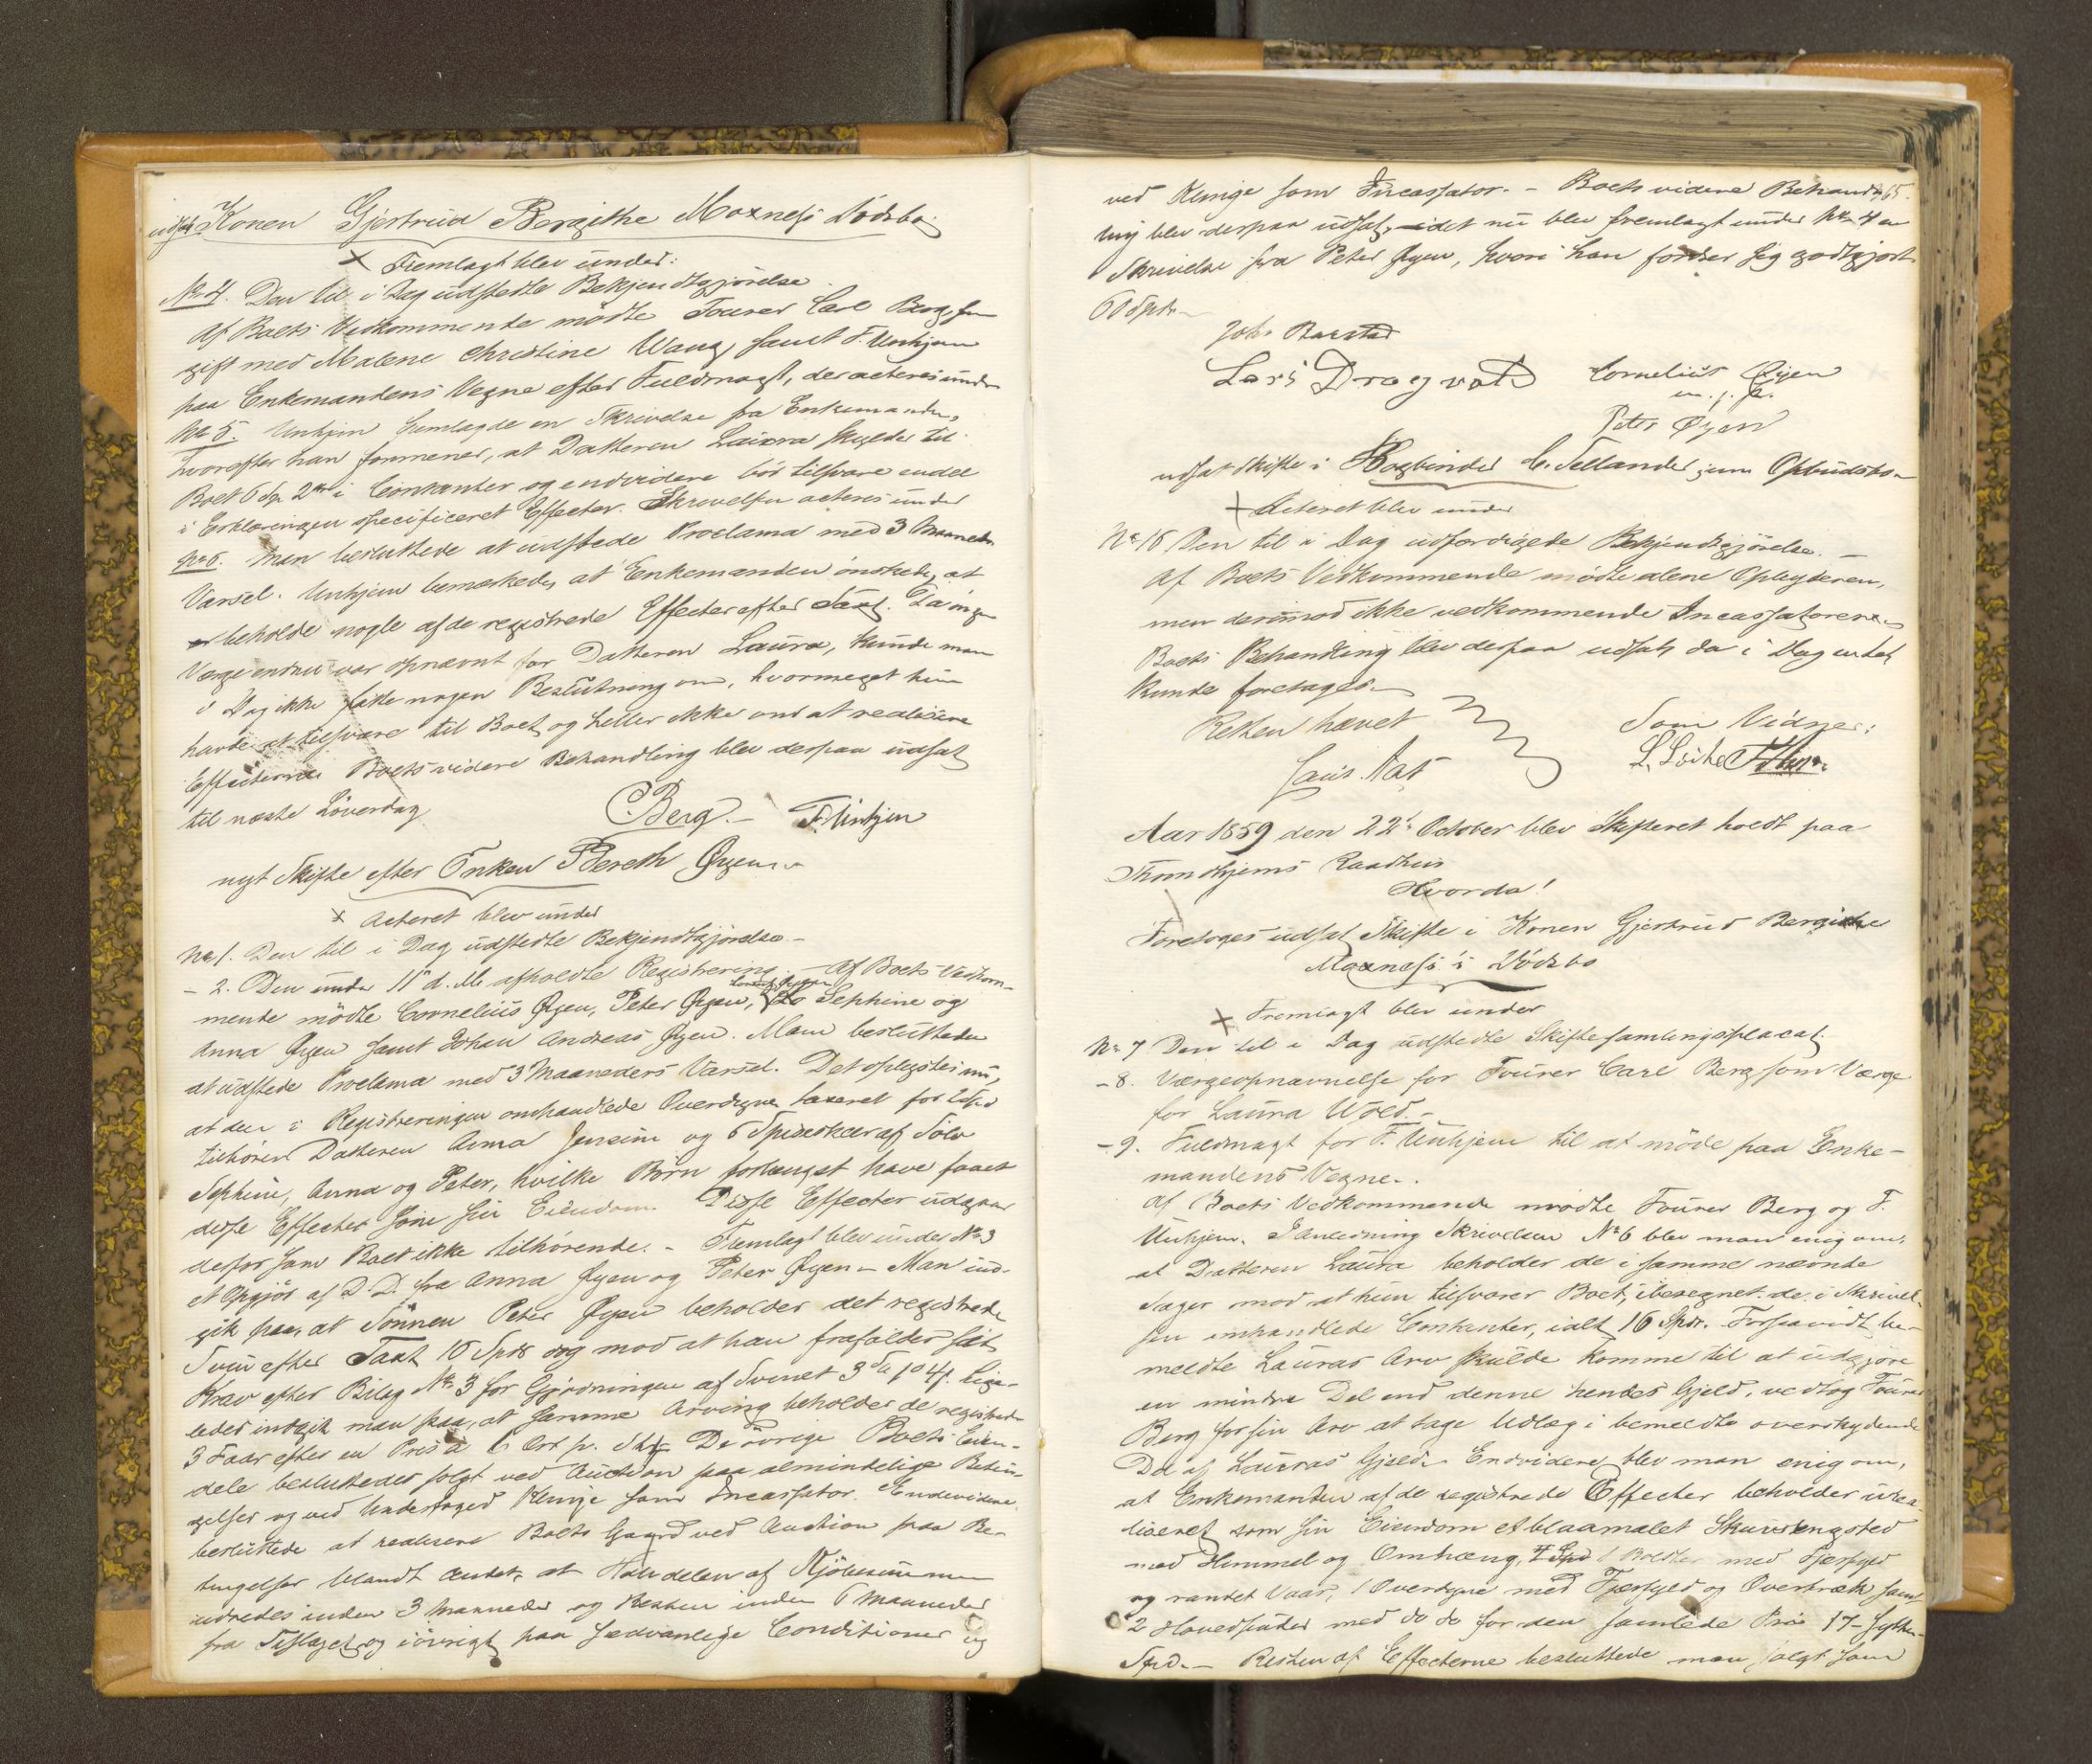 udsat Konen Gjertrud Bergithe Moxnes's Dödsbo
Fremlagt blev under:
No 4. Den til i Dag udstedte Bekjendtgjørelse
Af Boets Vedkommende mødte Fourer Carl Berg som
gift med Malene Christine Wang, samt F. Unhjem
paa Enkemandens Vegne efter Fuldmagt, der acteres under
No 5. Unhjem fremlagde en Skrivelse fra Enkemanden,
hvorefter han formener, at Datteren Laura skylder til
Boet 6 Spd 2 i Contanter og endvidere bör tilsvare endel
i Erklæringen specificeret Effecter. Skrivelsen acteres under
No 6. Man besluttede at udstede Proclama med 3 Maaneders
Varsel. Unhjem bemærkede, at Enkemanden ønskede, at
beholde nogle af de registrede Effecter efter Taxt. Da ingen
Værge endnu var opnævnt for Datteren Laura, kunde man
i Dag ikke fatte nogen Beslutning om, hvormeget hun
havde at tilsvare til Boet og heller ikke om at realisere
Effecterne. Boets videre Behandling blev derpaa udsat
til næste Löverdag
CBerg. – F Unhjem
nyt Skifte efter Enken Bereth Øyen
Acteret blev under
No 1. Den til i Dag udstedte Bekjendtgjørelse –
– 2. Den under 11 d. M. afholdte Registrering – Af Boets Vedkom-
mende mödte Cornelius Øyen, Peter Øyen, Sephine og
Anna Øyen samt Johan Andreas Øyen. Man besluttede
at udstede Proclama med 3 Maaneders Varsel. Det oplystes nu,
at den i Registreringen omhandlede Overdyne taxeret for
tilhörer Datteren Anna Jensine og 6 Spiseskeer af Sölv
Sephine, Anna og Peter, hvilke Börn forlængst have faaet
disse Effecter som sin Eiendom. Disse Effecter udgaar
derfor som Boet ikke tilhörende. – Fremlagt blev under No 3
et Opgjör af D.D. fra Anna Øyen og Peter Øyen – Man ind-
gik paa, at Sönnen Peter Øyen beholder det registrede
Sviin efter Taxt 10 Spd og mod at han frafalder sit
Krav efter Bilag No 3 for Gjødningen af Svinet 3 Lige-
ledes indgik man paa, at samme Arving beholder de registrede
3 Faar efter en Priis à 6 Ort pr. Stk. De övrige Boets Eien-
dele besluttedes solgt ved Auction paa almindelige Betin-
gelser og ved Underfoged Klinge som Incassator. Endvidere
besluttede at realisere Boets Gaard ved Auction paa Be-
tingelser blandt Andet, at Halvdelen af Kjöbesummen
udredes inden 3 Maaneder og Resten inden 6 Maaneder
fra Tilslaget og iövrigt paa sædvanlige Conditioner og
365.
ved Klinge som Incassator. – Boets videre Behand-
ling blev derpaa udsat, idet nu blev fremlagt under No 4 en
Skrivelse fra Peter Øyen, hvori han fordrer sig godtgjort
60 Spd
Johs Barstad
Lars Dragvold Cornelius Øyen
m. f. P.
Peter Øyen
udsat Skifte i Bogbinder C. Tellander jun Opbudsbo
Acteret blev under
No 16 Den til i Dag udfærdigede Bekjendtgjörelse. –
Af Boets Vedkommende mødte alene Opbyderen,
men derimod ikke vedkommende Incassatorer
Boets Behandling blev derpaa udsat, da i Dag intet
kunde foretages.
Retten hævet
Som Vidner:
Aar 1859 den 22de October blev Skifteret holdt paa
Throndhjems Raadhuus
Hvorda!
Foretoges udsat Skifte i Konen Gjertrud Bergithe
Moxnes's Dödsbo
Fremlagt blev under
No 7 Den til i Dag udstedte Skiftesamlingsplacat.
– 8. Værgeopnævnelse for Fourer Carl Berg som Værge
for Laura Wold. –
– 9. Fuldmagt for F. Unhjem til at möde paa Enke-
mandens Vegne.
Af Boets Vedkommende mødte Fourer Berg og F.
Unhjem. I Anledning Skrivelsen No 6 blev man enig om,
at Datteren Laura beholder de i samme nævnte
Sager mod at hun tilsvarer Boet, iberegnet de i Skrivel-
sen omhandlede Contanter, ialt 16 Spdr. Forsaavidt be-
meldte Lauras Arv skulde komme til at udgjøre
en mindre Del end denne hendes Gjeld, vedtog Fourer
Berg for sin Arv at tage Udlæg i bemeldte overskydende
Del af Lauras Gjeld. Endvidere blev man enig om,
at Enkemanden af de registrede Effecter beholder urea-
liseret som sin Eiendom et blaamalet Skuvsengsted
med Himmel og Omhæng, 1 Bolster med Fjærfyld
og randet Vaar, 1 Overdyne med Fjærfyld og Overtræk samt
2 Hovedputer med do do for den samlede Priis 17 – sytten
Spd. – Resten af Effecterne besluttede man solgt som